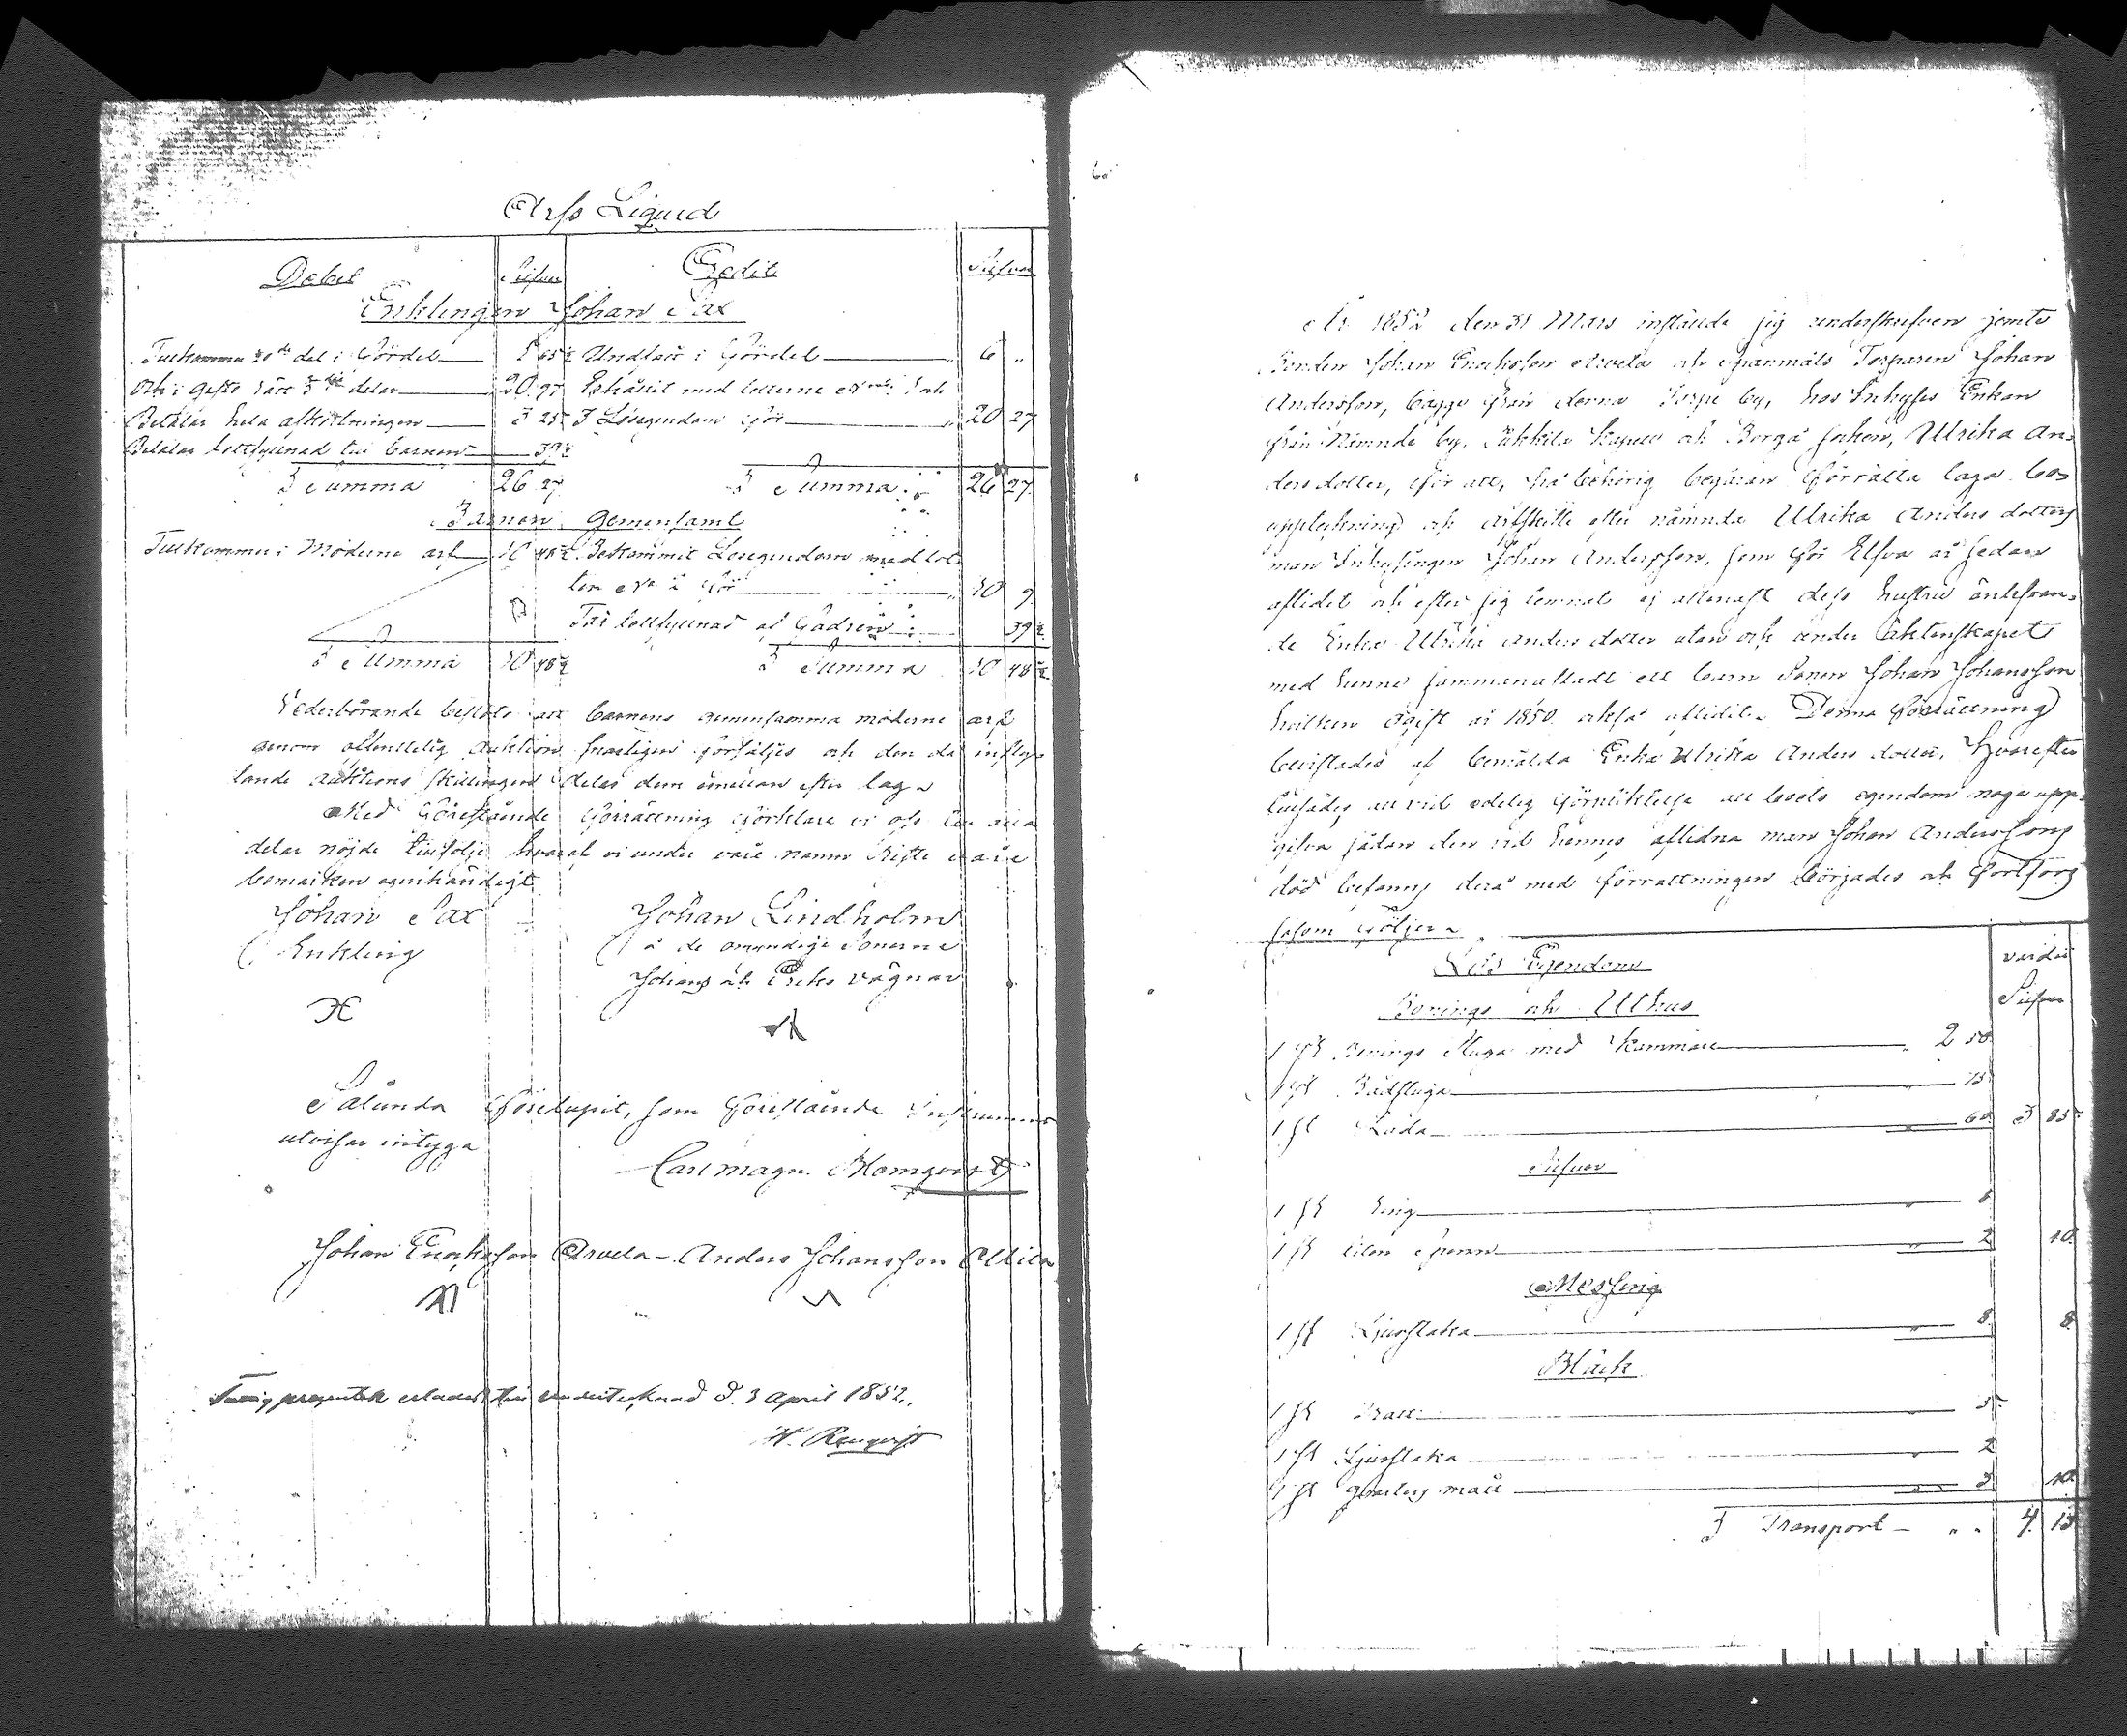 Arfs Liqvid
Debet Silfver Credit Silfver
Enklingen Johan Sax
Tillkommer 20de del i Fördel 1 05½ Undfått i Fördel 6 "
Och i gifto rätt delar 20 97 Erhållit med lotterne
Betalar hela afkortningen 3 25 I Lösegendom för 20 27
Betalar lottfyllnad till barnen 39½
S Summa 26 27 S Summa 26 27
Barnen gemensamt
Tillkommer i Möderne arf 10 48½ Bekommit Lösegendom med lot-
ten för 10 9
Får lottfyllnad af Fadren 39½
S Summa 10 48½ S Summa 10 48½
Vederbörande beslöto att barnens gemensamma möderne arf
genom offentelig auktion försäljes och den då influ-
tande auktions skillingen delas dem emellan efter lag
Med föreståënde förrättning förklara vi oss till alla
delar nöjde till följe hvaraf vi under våra namn
bomärken egenhändigt
Johan Sax Johan Lindholm
Enkling å de omyndige Sönerne
Johans och Eriks vägnar
Sålunda förelupit, som föreståënde Instrument
utvisar intyga
Carl Magn. Blomqvist
Johan Enochsson Arvela - Anders Johansson
erlades till undertecknad d. 3 April 1852.
H. Renqvist
År 1852 den 31 Mars instälde jig underskrefven jemte
Bonden Johan Enochsson Arvela och Torparen Johan
Andersson, bägge från denna by, hos Inhyses Enkan
från Nämnde by, Kapell och Borgå Socken, Ulrika An-
dersdotter, för att, på behörig begäran förrätta laga bo-
uppteckning och arfskifte efter nämnda Ulrika Anders dotters
man Inhysingen Johan Andersson, som för Elfva år sedan
aflidit och efter sig lemnat ej allenast dess hustru änlefvan-
de Enka Ulrika Anders dotter utan och under äktenskapet
med henne sammanafladt ett barn Sonen Johan Johansson
hvilken ogift år 1850 också aflidit. Denna förrättning
bevistades af bemälda Enka Ulrika Anders dotter, Hvarefter
tillsades att vid edelig förpliktelse all boets egendom noga upp-
gifva sådan den vid hennes aflidna man Johan Anderssons
död befanns derå med förrättningen börjades och fortfors
såsom följer
Lös Egendom värdie
Bonings och Uthus Silfver
1 st Bonings Stuga med Kammare 2 50
1 st Badstuga 75
1 st Lada 60 3 85
Silfver
1 st Ring 8
1 st liten Spenne 2 10
Messing
1 st Ljusstaka 8 8
Bläck
1 st Tratt 5
1 st Ljusstaka 2
1 st mått 3 10
S Transport 4 13